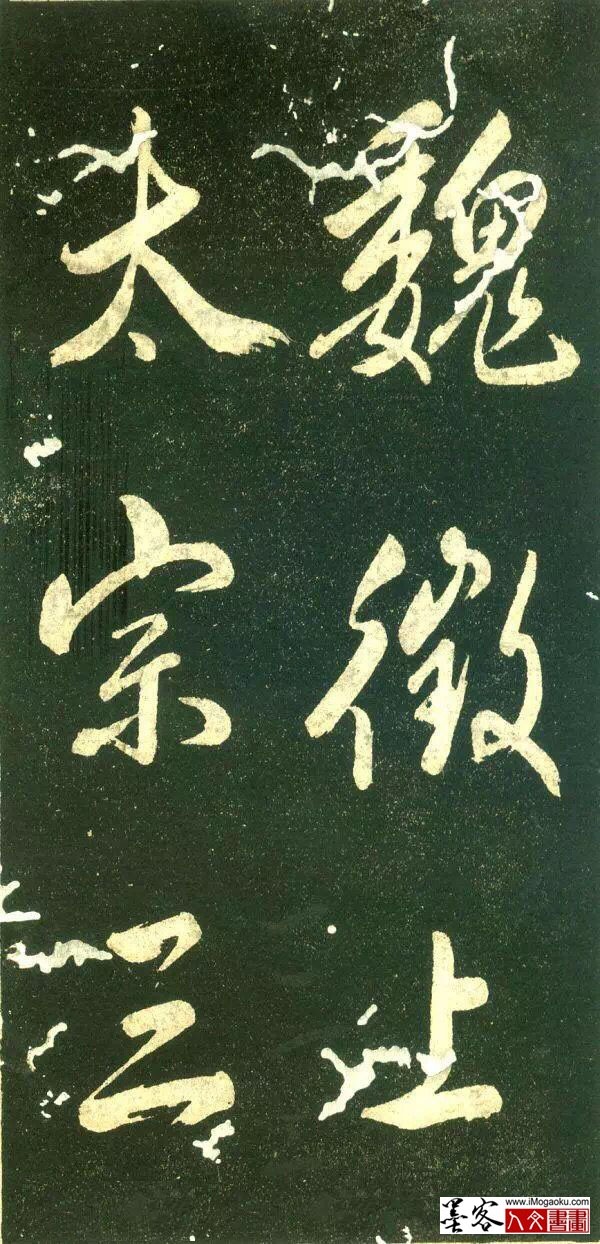 魏徵上
太宗三
墨客
www.iMogaoku.com
人文書畫